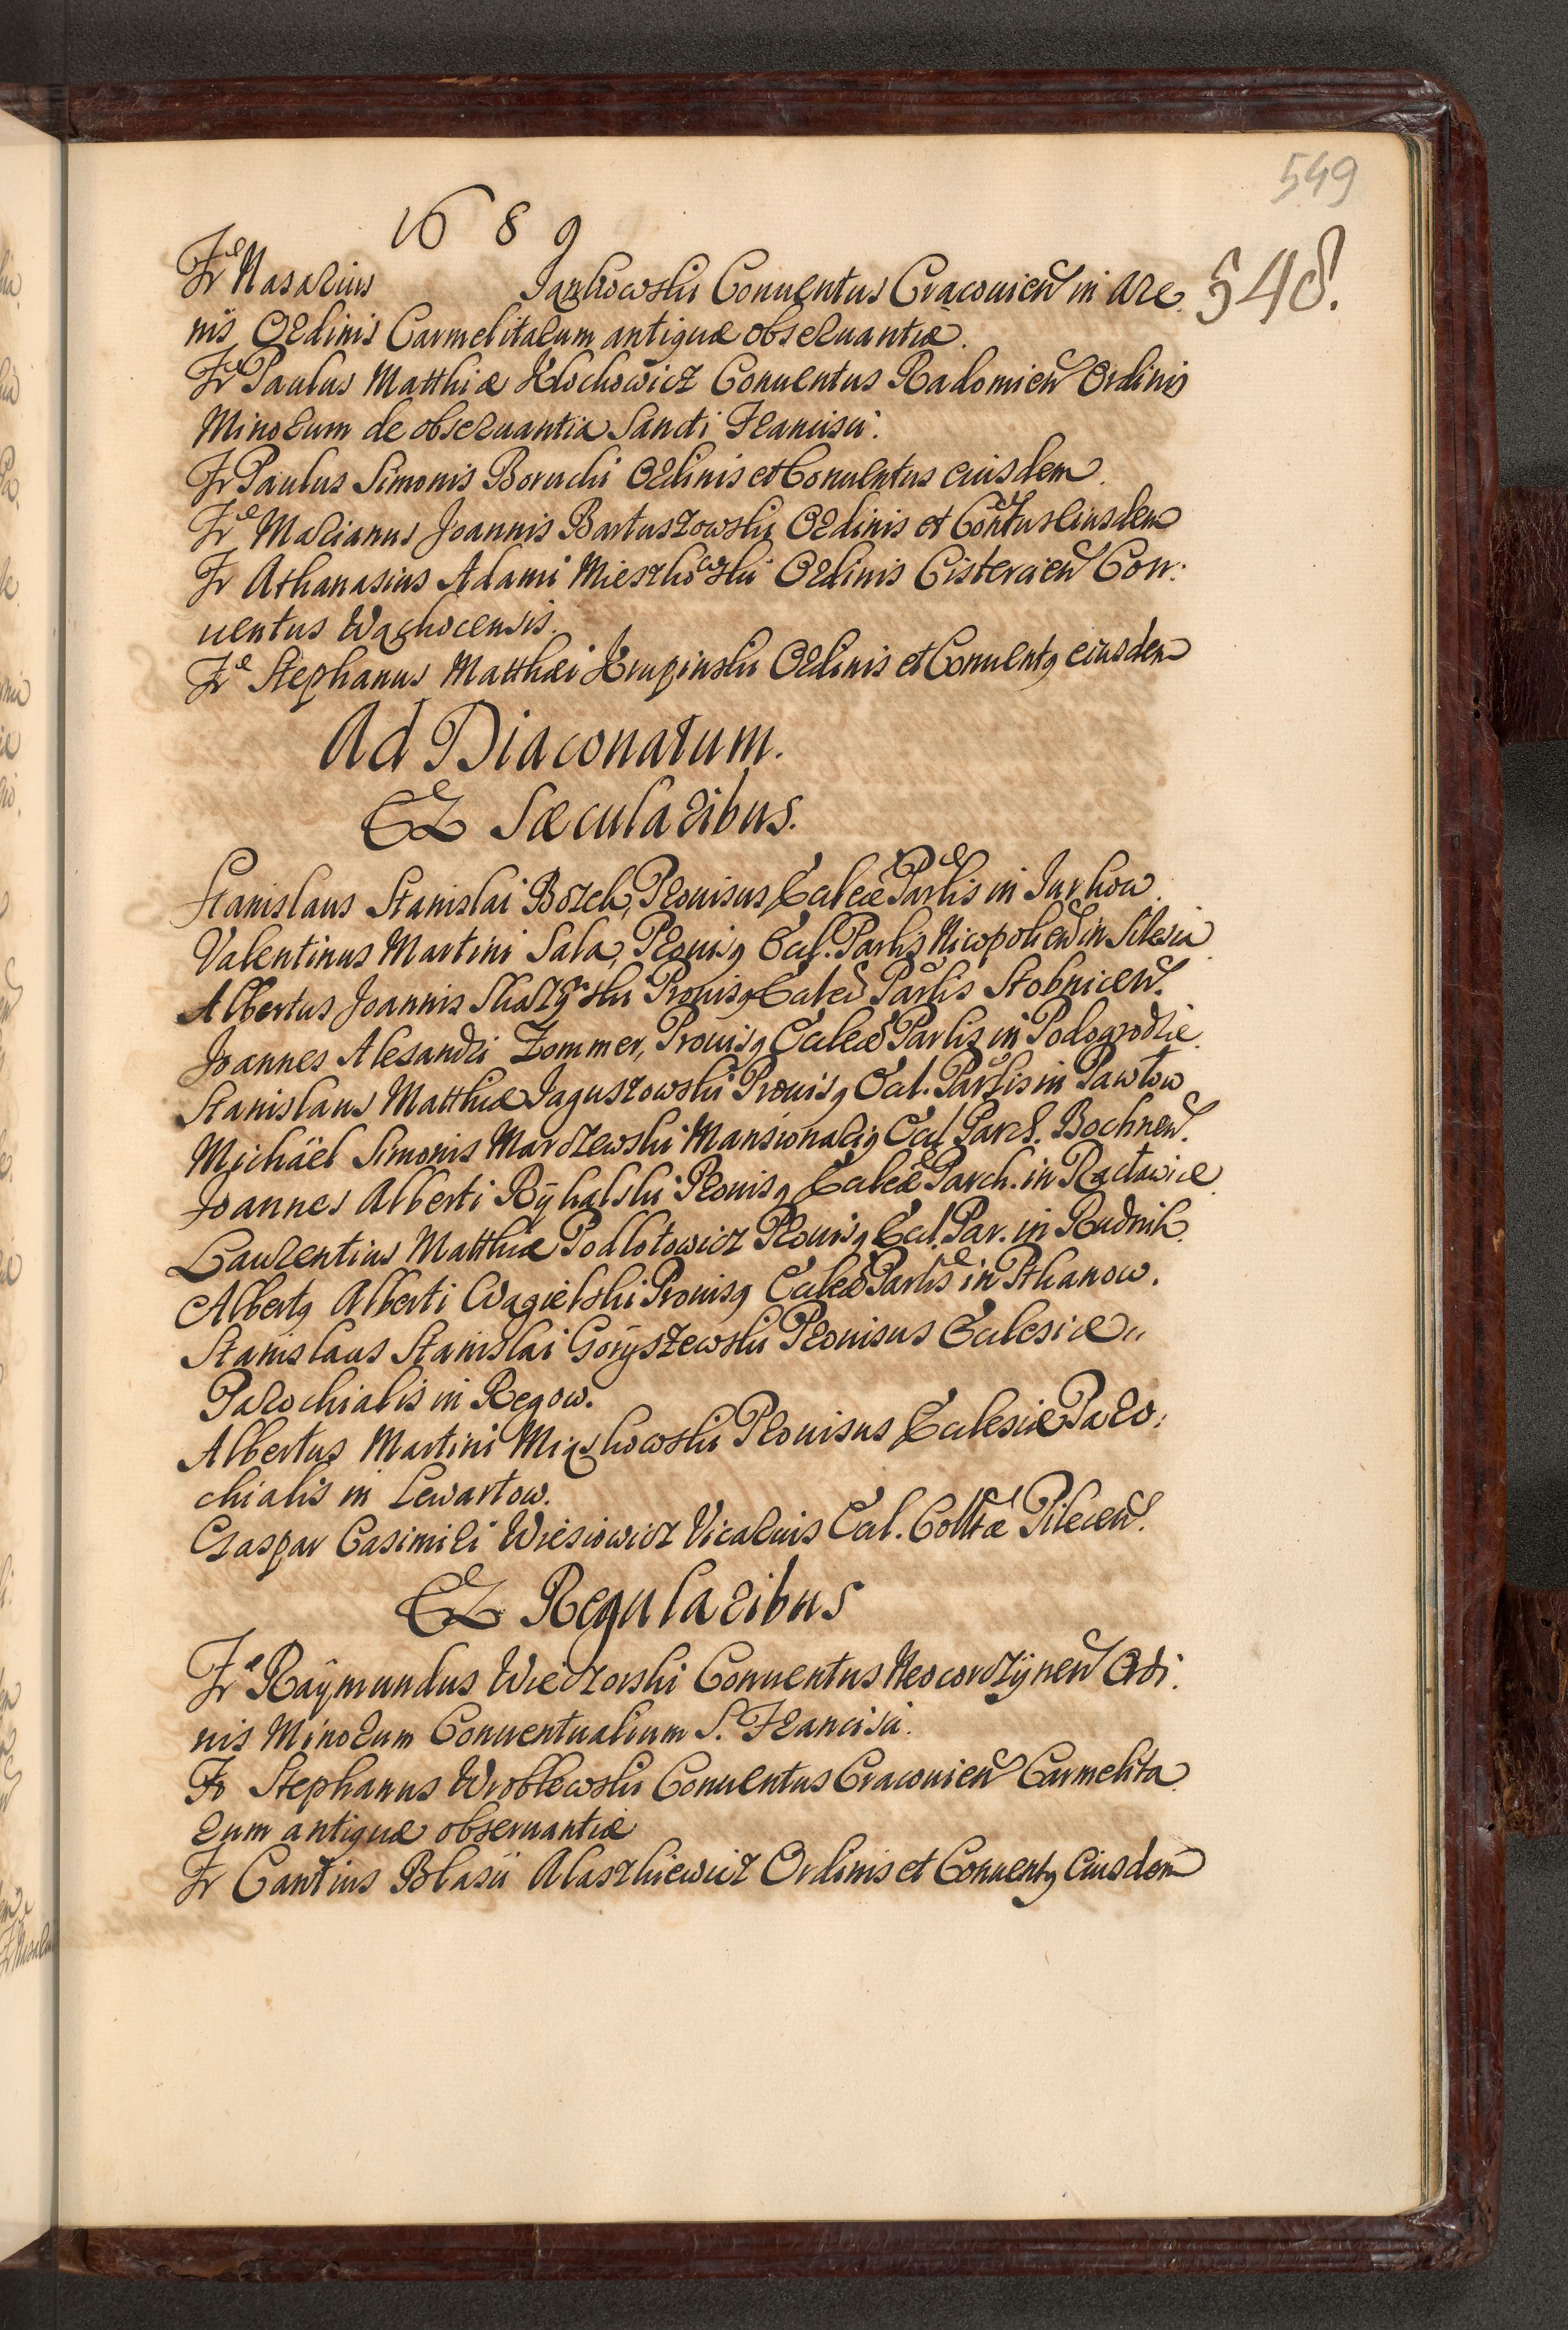 549
1689
548.
Fr Nasarius Jarzkowski Conuentus Cracouien in Are
nis Ordinis Carmelitarum antiquæ obseruantiæ.
Fr Paulus Matthiæ Klochowicz Conuentus Radomien Ordinis
Minorum de obseruantia Sancti Francisci.
Fr Paulus Simonis Boruchi Ordinis et Conuentus eiusdem.
Fr Marianus Joannis Bartuszowski Ordinis et Contus eiusdem
Fr Athanasius Adami Mieszkowski Ordinis Cistercien Con:
uentus Wąchocensis.
Fr Stephanus Matthæi Krupinski Ordinis et Conuentq eiusdem
Ad Diaconatum.
Ex Sæcularibus.
Stanislaus Stanislai Bozek, Prouisus Ecleæ Parlis in Jurkow.
Valentinus Martini Sala, Prouisq Ecl. Parlis Nicopolien in Silesia
Albertus Joannis Prouisq Ecleæ Parlis Stobnicen.
Joannes Alexandri Zommer, Prouisq Ecleæ Parlis in Podogrodzie.
Stanislaus Matthiæ Jaguszowski Prouisq Ecl. Parlis in Pawłow
Michäel Simonis Marczewski Mansionariq Ecl Parch. Bochnen.
Joannes Alberti Rÿkalski Prouisq Ecleæ Parch. in Racławice
Laurentius Matthiæ Podlotowicz Prouisq Ecl. Par. in Rudnik.
Albertq Alberti Wągielski Prouisq Ecleæ Parlis in Pkanow.
Stanislaus Stanislai Gorÿszewski Prouisus Eclesiæ
Parochialis in Regow.
Albertus Martini Miąskowski Prouisus Eclesiæ Paro:
chialis in Lewartow.
Gaspar Casimiri Wiesiowicz Vicarius Ecl. Colltæ Pilecen.
Ex Regularibus
Fr Raÿmundus Wieczorski Conuentus Neocorczÿnen Ordi:
nis Minorum Conuentualium S. Francisci.
Fr Stephanus Wroblewski Conuentus Cracouien Carmelita
rum antiquæ obseruantiæ
Fr Cantius Blasii Alaszkiewicz Ordinis et Conuentq Eiusdem